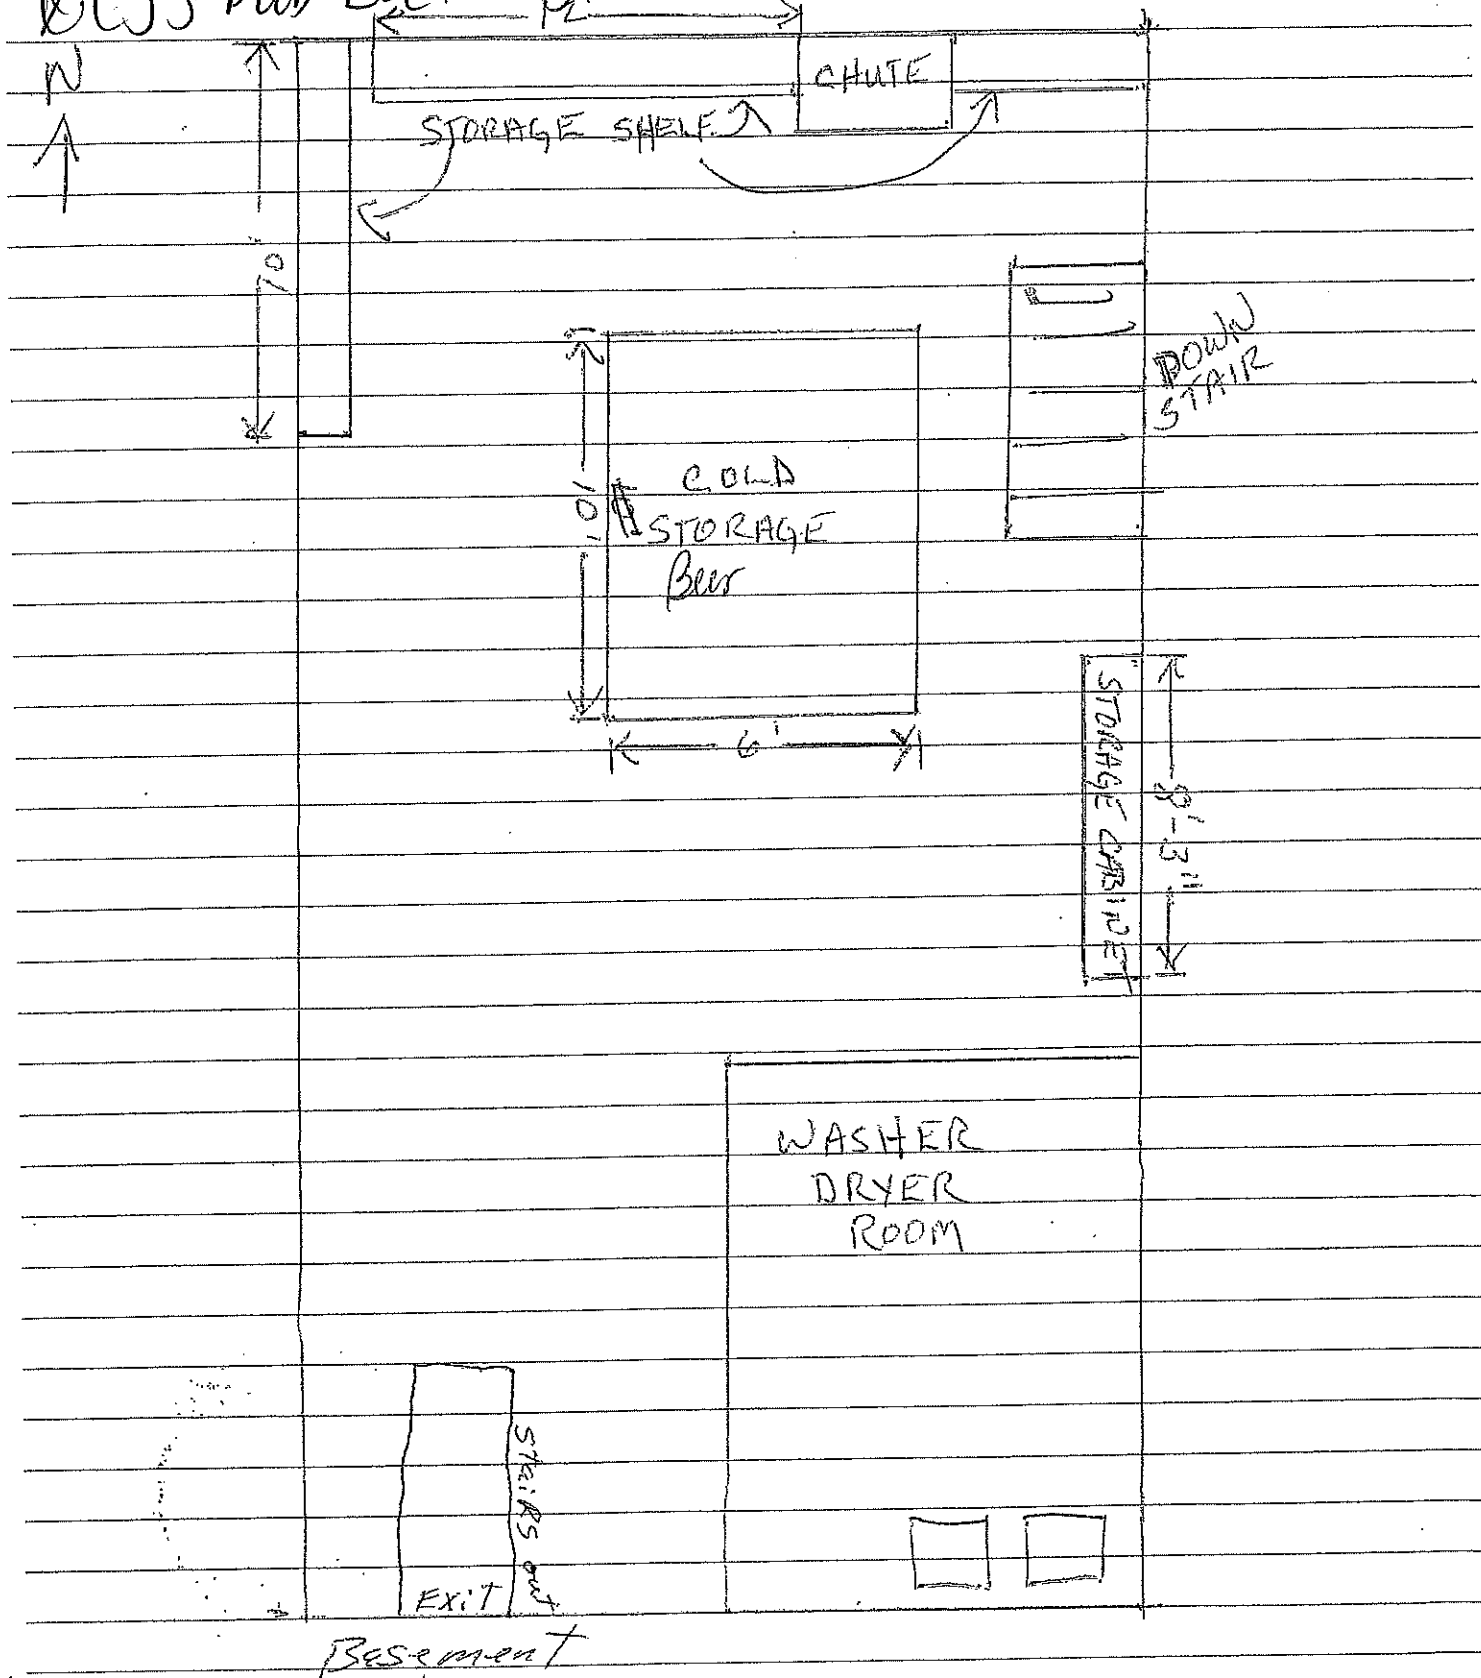 N
CHUTE
STORAGE SHELF
10'
DOWN
STAIR
COLD
STORAGE
Beer
10'
6'
STORAGE CABINET
8'-3"
WASHER
DRYER
ROOM
STaiRS out
EXiT
Basement